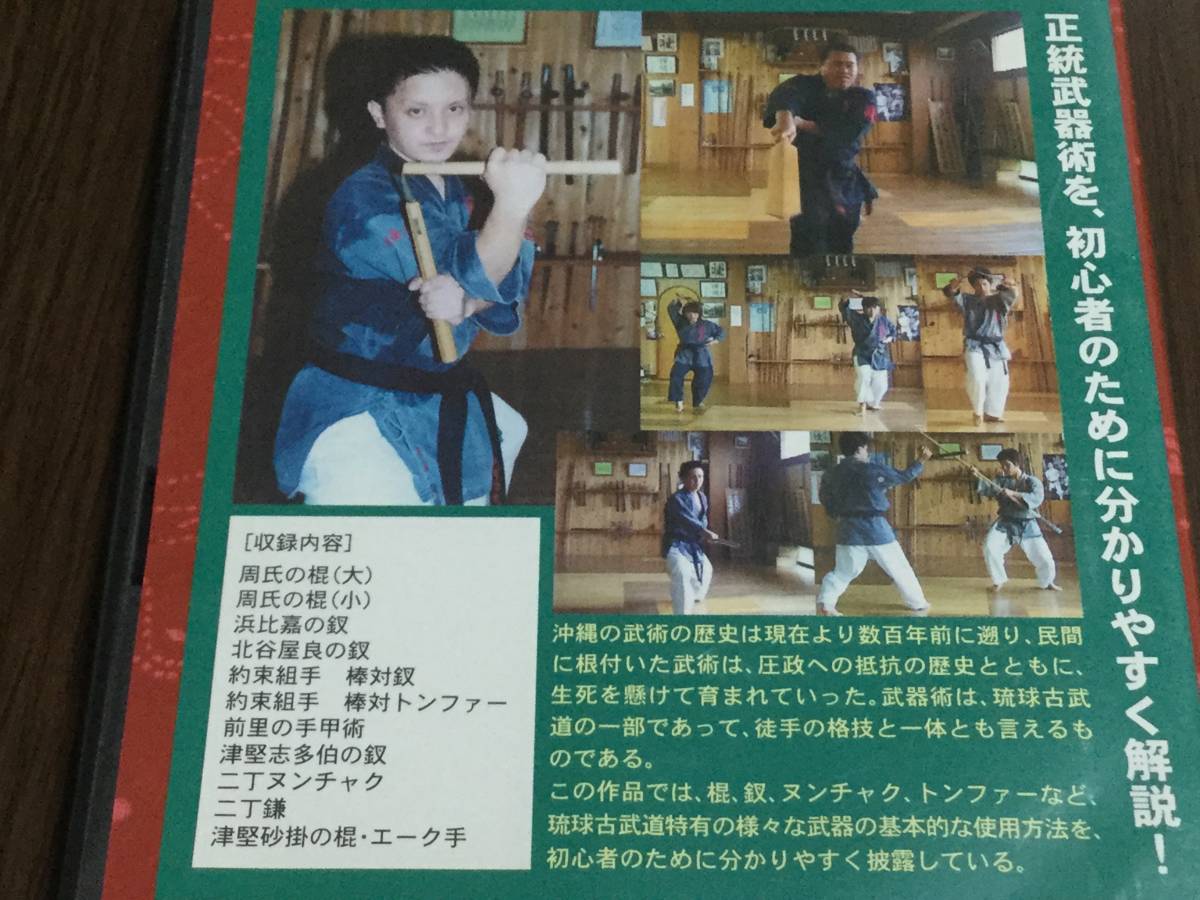 正統武器術を、初心者のために分かりやすく解説！
［収録内容］
周氏の棍（大）
周氏の棍（小）
浜比嘉の釵
北谷屋良の釵
約束組手　棒対釵
約束組手　棒対トンファー
前里の手甲術
津堅志多伯の釵
二丁ヌンチャク
二丁鎌
津堅砂掛の棍・エーク手
沖縄の武術の歴史は現在より数百年前に遡り、民間
に根付いた武術は、圧政への抵抗の歴史とともに、
生死を懸けて育まれていった。武器術は、琉球古武
道の一部であって、徒手の格技と一体とも言えるも
のである。
この作品では、棍、釵、ヌンチャク、トンファーなど、
琉球古武道特有の様々な武器の基本的な使用方法を、
初心者のために分かりやすく披露している。